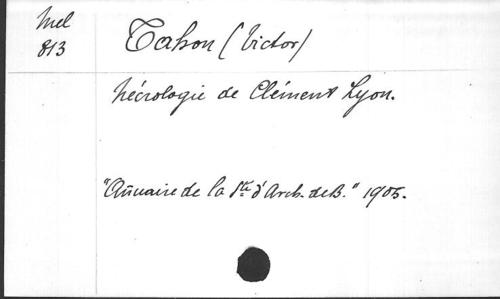 Mel
813
Tahon (Victor)
Nécrologie de Clément Lyon.
"Añuaire de la Sté d'Arch. de B." 1905.